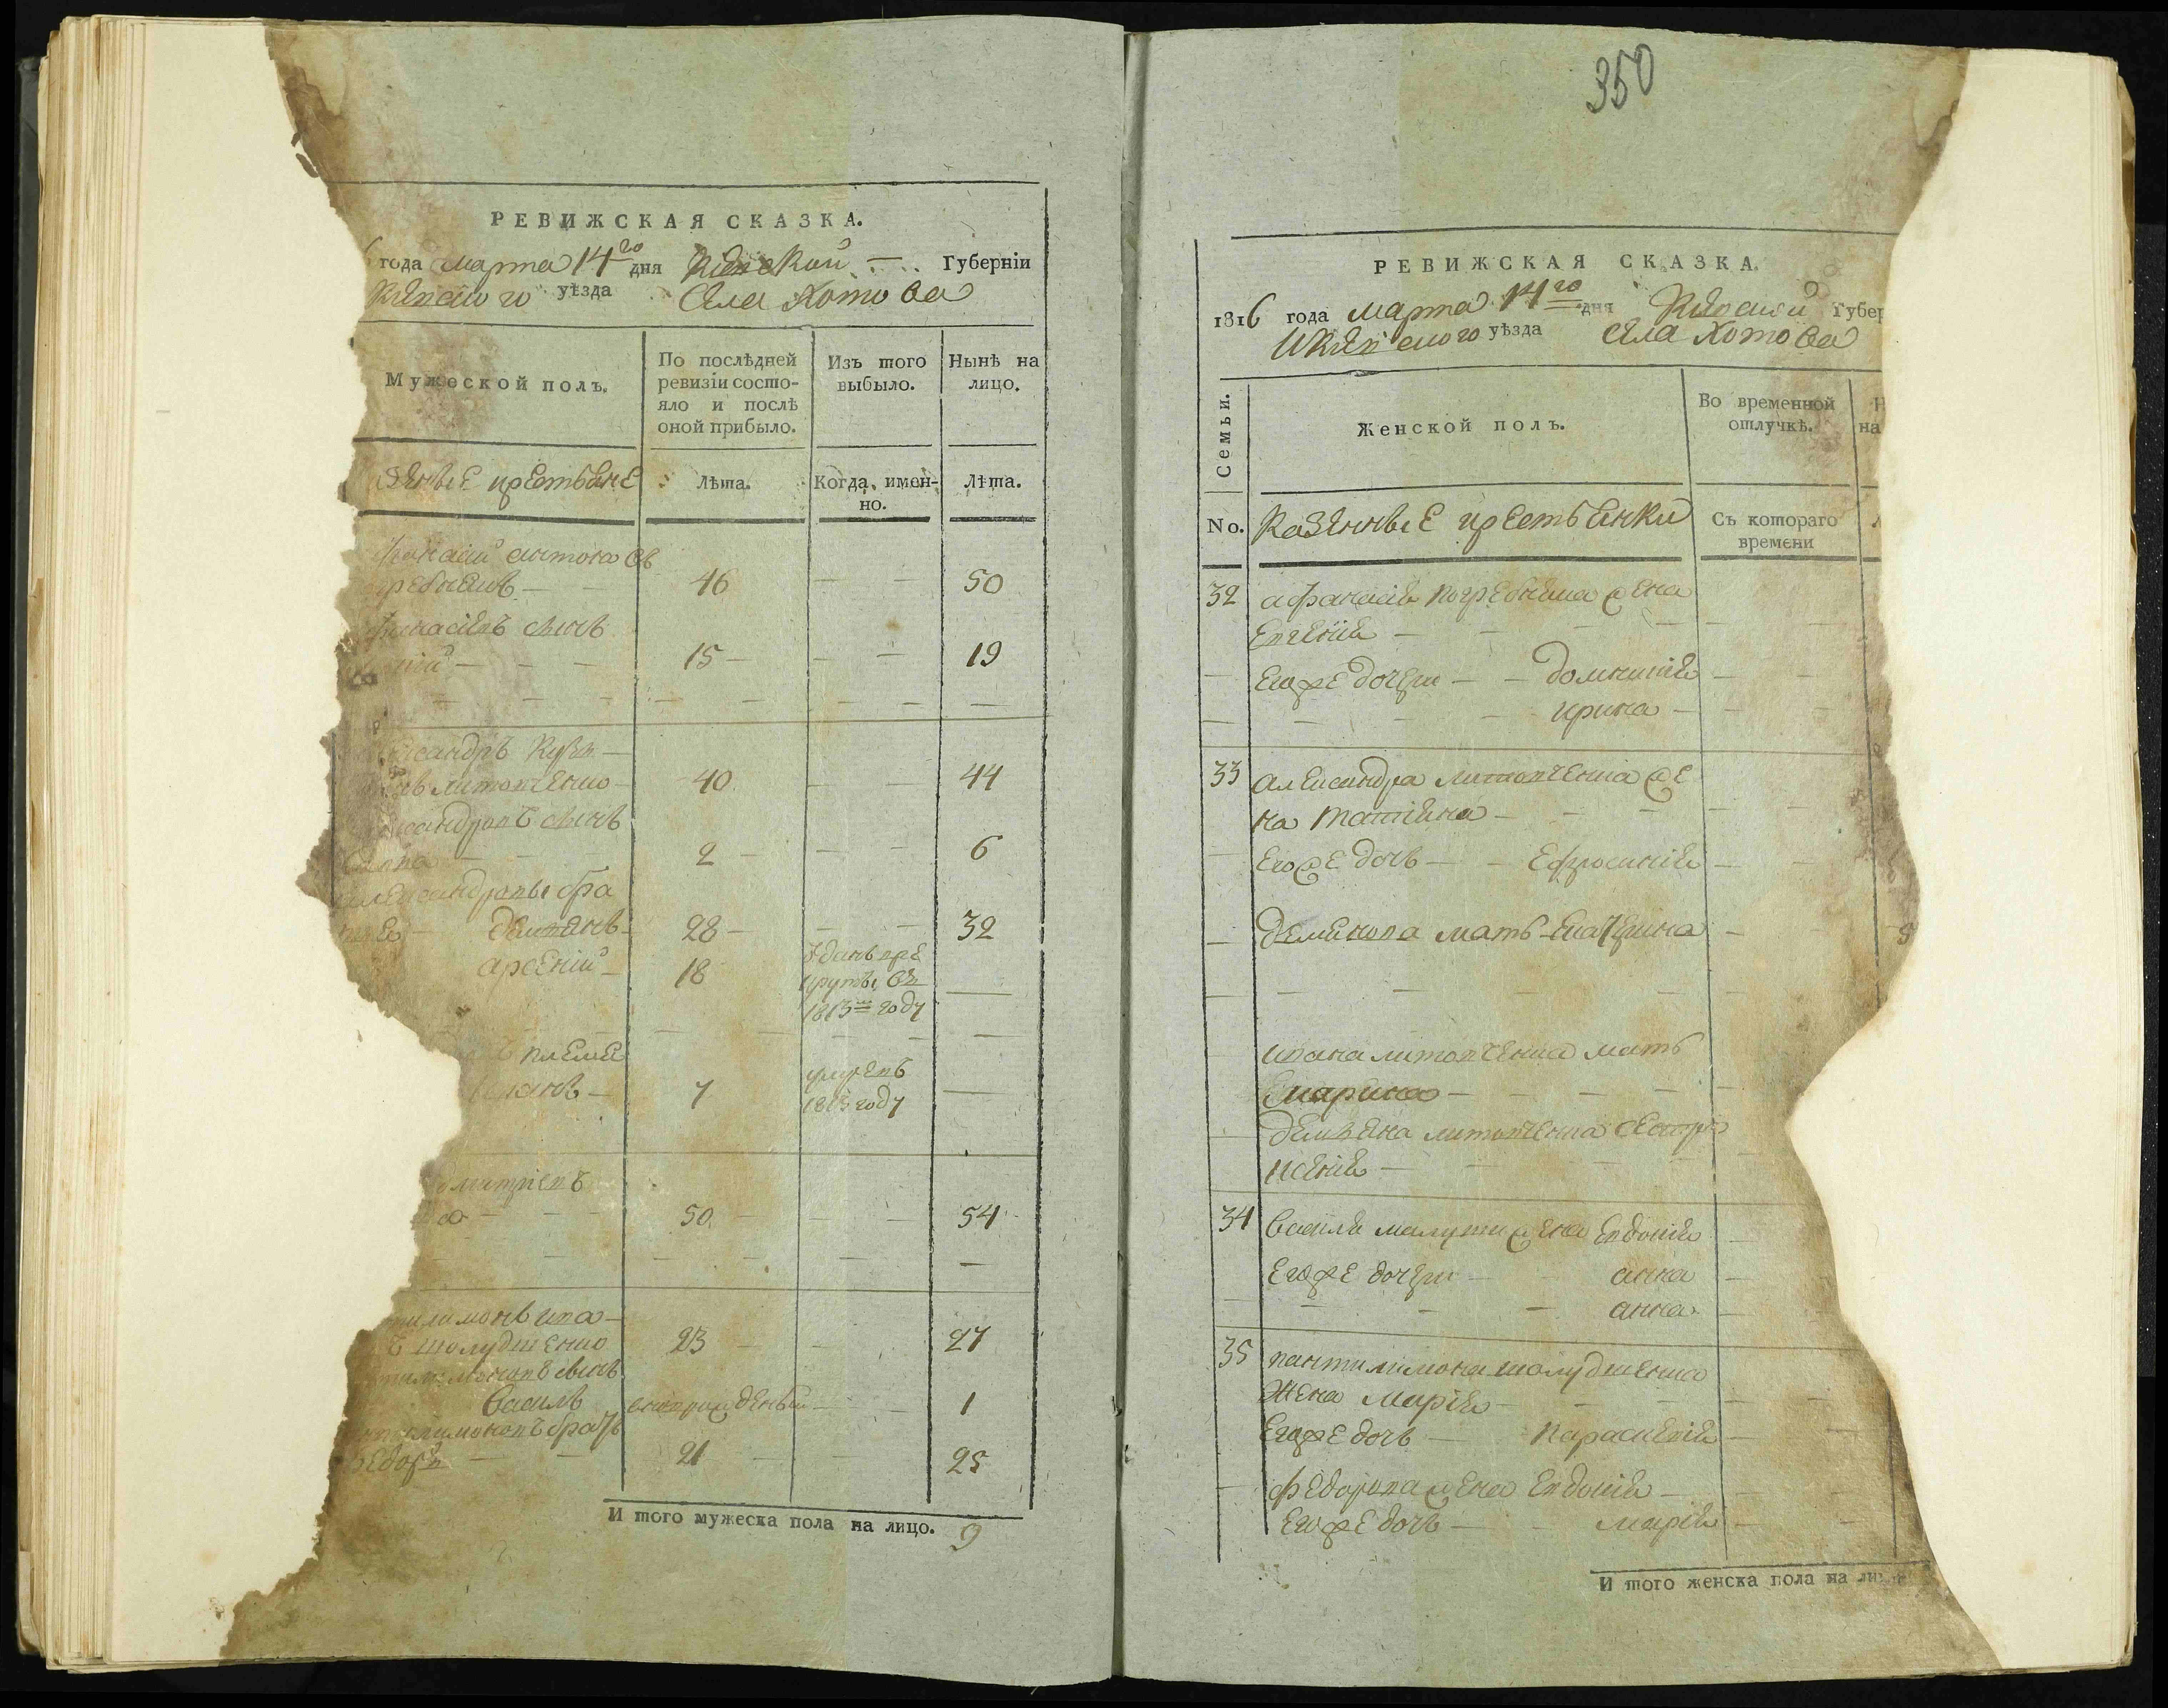 РЕВИЖСКАЯ СКАЗКА.
года марта 14го дня Кіевской Губерніи
Кіевского уѣзда Села Хотова
Мужеской полъ.
По послѣдней
ревизіи состо-
яло и послѣ
оной прибыло.
Изъ того
выбыло.
Нынѣ на
лицо.
крестьяне
Лѣта.
Когда имен-
но.
Лѣта.
антоновъ
46 50
сынъ
15 19
40 44
литовченко
сынъ
2 6
александровы бра
демянъ 28 32
арсеній 18
зданъ вре
круты въ
1813м году
племе
7
умеръ
1813 году
дмитріевъ
50 54
ива
шолудченко 23 27
сынъ
василь новорожденный 1
братъ
федоръ 21 25
И того мужеска пола на лицо. 9
350
РЕВИЖСКАЯ СКАЗКА.
1816 года марта 14го дня Кіевской Губер
Кіевского уѣзда села Хотова
Семьи.
Женской полъ.
Во временной
отлучкѣ.
на
No.
Казенные крестьянки
Съ котораго
времени
32 афанасія погребняка жена
Евгенія
Егоже дочери домникія
ирина
33 александра литовченка же
на татіяна
Егоже дочь Ефросинія
демянова мать екатерина
ивана литовченка мать
марина
демяна литовченка сестра
ксенія
34 василя малути жена Евдокія
Егоже дочери анна
анна
35 пантилимона шолудченка
жена марія
Егоже дочь параскевія
федорова жена Евдокія
Егоже дочь марія
И того женска пола на ли